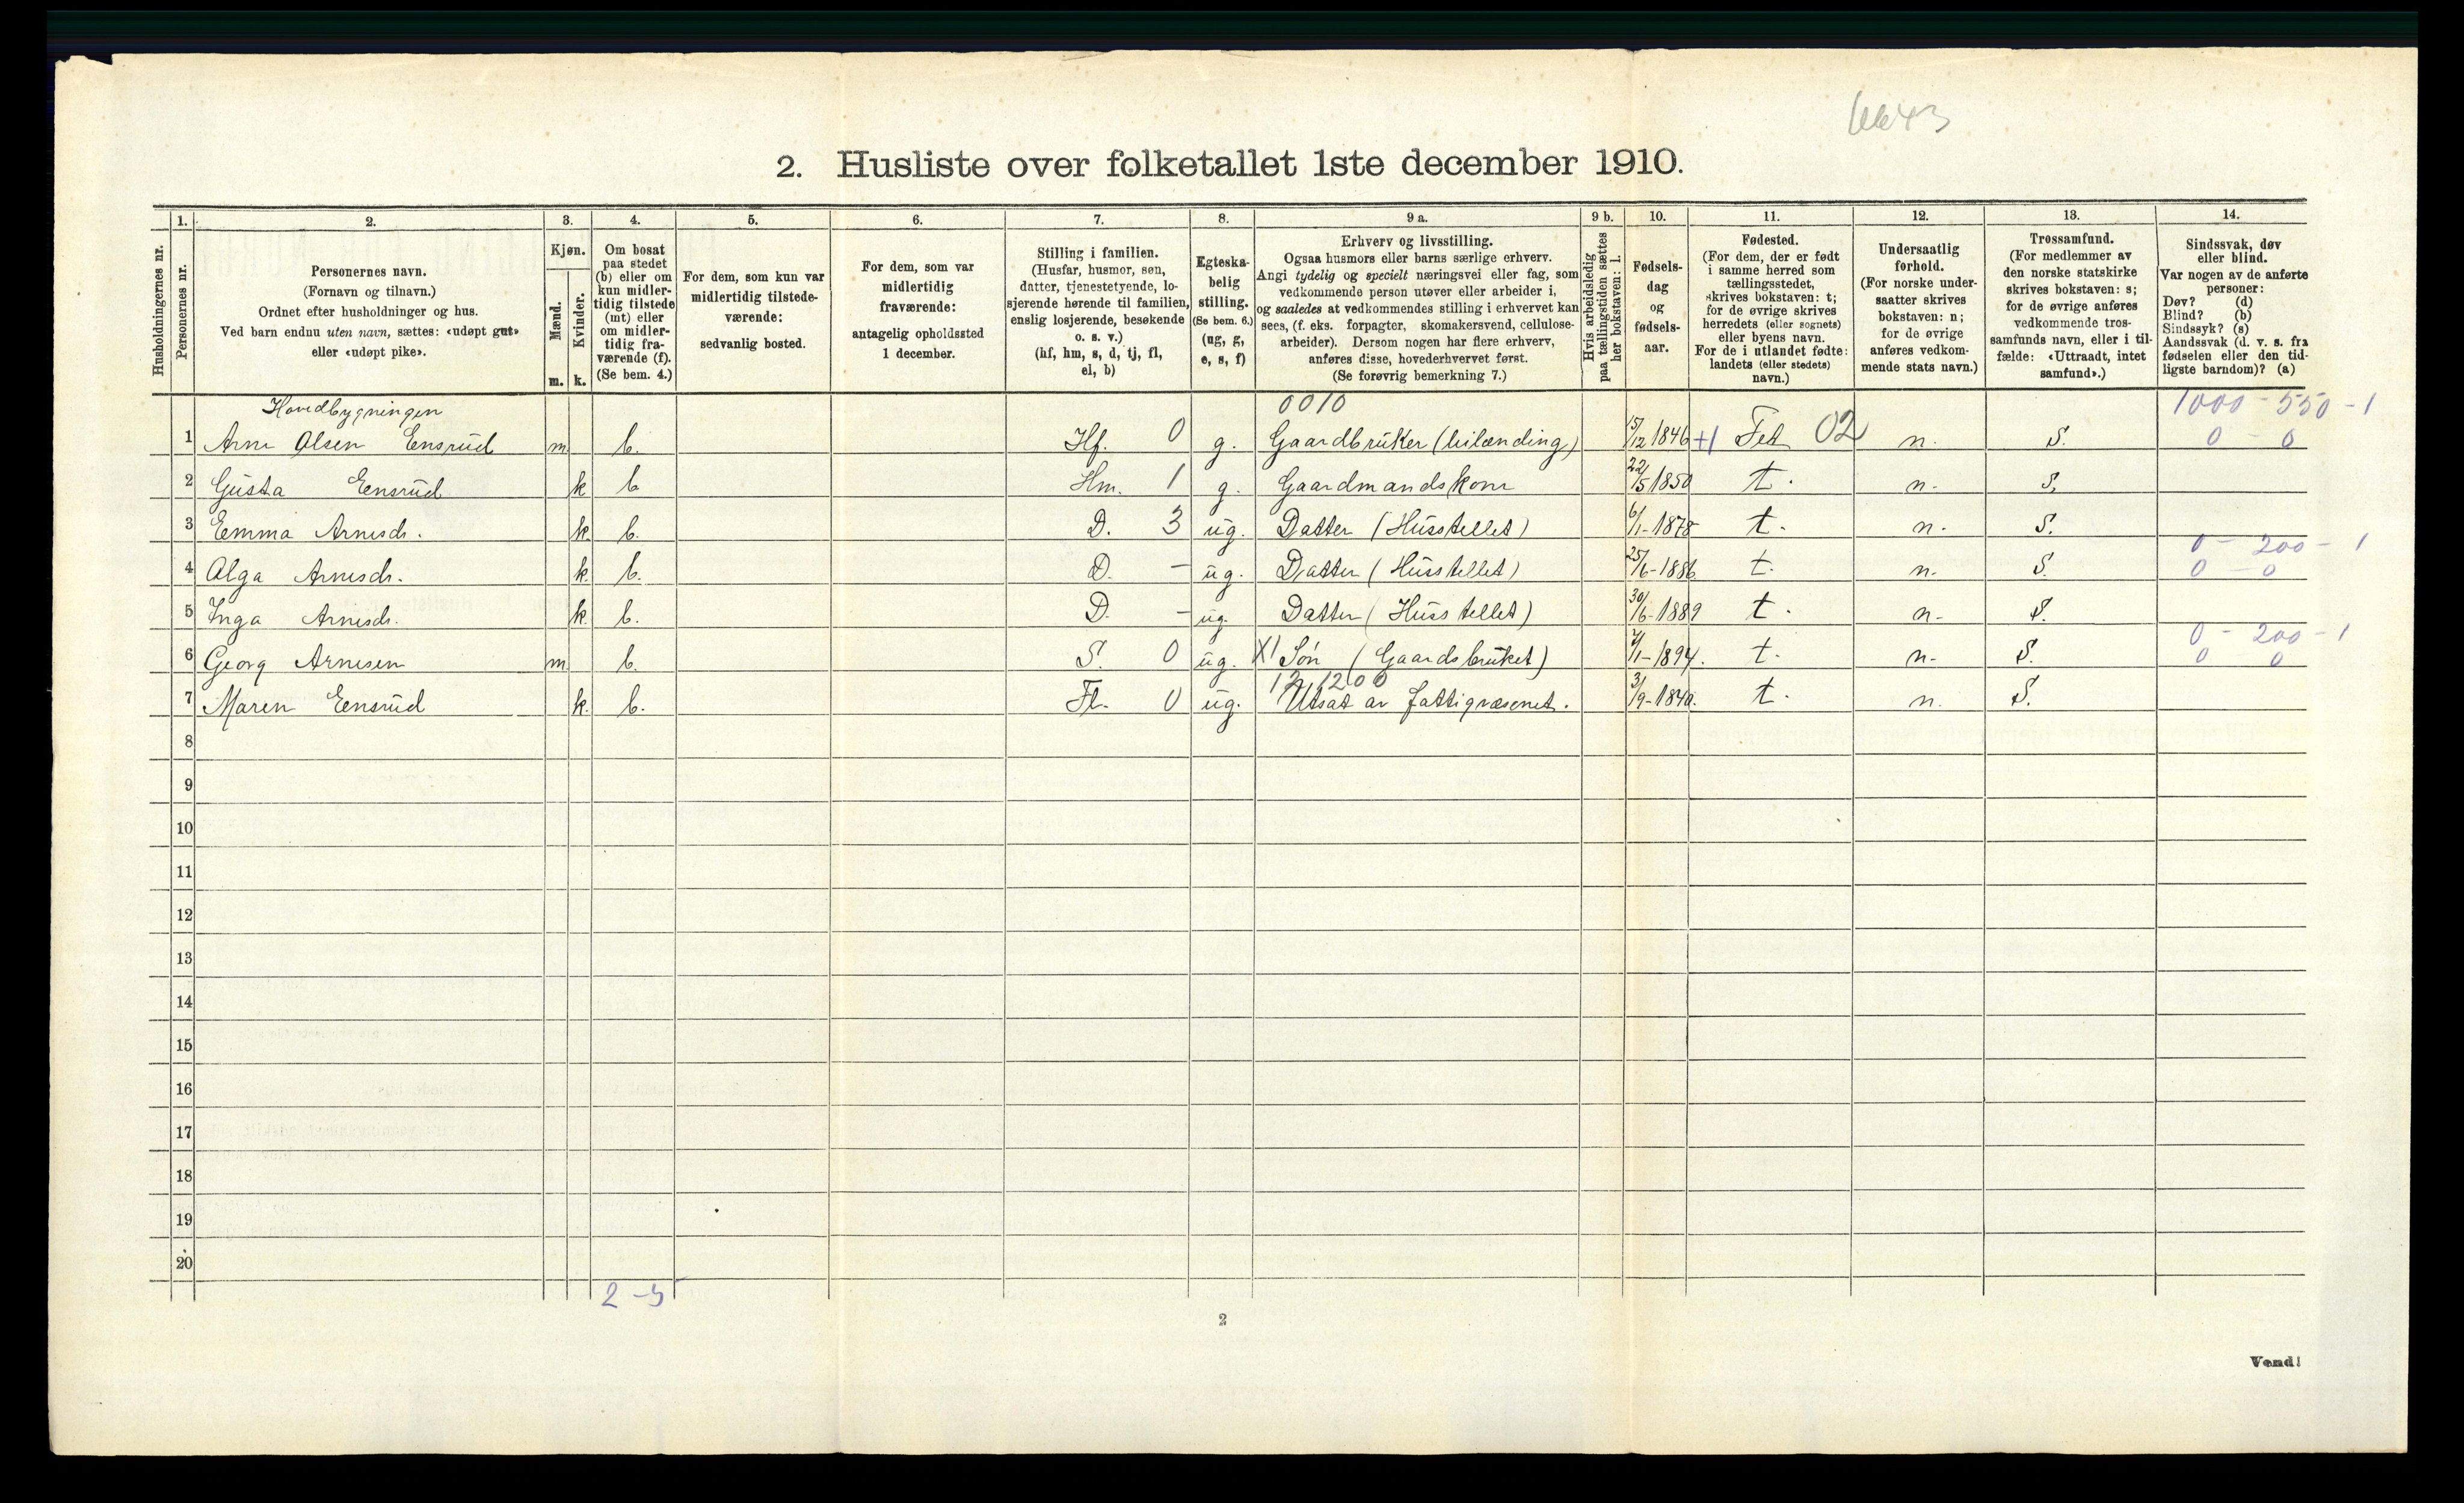 6643
2. Husliste over folketallet 1ste december 1910.
Husholdningernes nr.
1.
Personernes nr.
2.
Personernes navn.
(Fornavn og tilnavn.)
Ordnet efter husholdninger og hus.
Ved barn endnu uten navn, sættes: «udøpt gut»
eller «udøpt pike».
3.
Kjøn.
Mænd.
Kvinder.
m. k.
4.
Om bosat
paa stedet
(b) eller om
kun midler-
tidig tilstede
(mt) eller
om midler-
tidig fra-
værende (f).
(Se bem. 4.)
5.
For dem, som kun var
midlertidig tilstede-
værende:
sedvanlig bosted.
6.
For dem, som var
midlertidig
fraværende:
antagelig opholdssted
1 december.
7.
Stilling i familien.
(Husfar, husmor, søn,
datter, tjenestetyende, lo-
sjerende hørende til familien,
enslig losjerende, besøkende
o. s. v.)
(hf, hm, s, d, tj, fl,
el, b)
8.
Egteska-
belig
stilling.
(Se bem. 6.)
(ug, g,
e, s, f)
9 a.
Erhverv og livsstilling.
Ogsaa husmors eller barns særlige erhverv.
Angi tydelig og specielt næringsvei eller fag, som
vedkommende person utøver eller arbeider i,
og saaledes at vedkommendes stilling i erhvervet kan
sees, (f. eks. forpagter, skomakersvend, cellulose-
arbeider). Dersom nogen har flere erhverv,
anføres disse, hovederhvervet først.
(Se forøvrig bemerkning 7.)
9 b.
Hvis arbeidsledig
paa tællingstiden sættes
her bokstaven: l.
10.
Fødsels-
dag
og
fødsels-
aar.
11.
Fødested.
(For dem, der er født
i samme herred som
tællingsstedet,
skrives bokstaven: t;
for de øvrige skrives
herredets (eller sognets)
eller byens navn.
For de i utlandet fødte:
landets (eller stedets)
navn.)
12.
Undersaatlig
forhold.
(For norske under-
saatter skrives
bokstaven: n;
for de øvrige
anføres vedkom-
mende stats navn.)
13.
Trossamfund.
(For medlemmer av
den norske statskirke
skrives bokstaven: s;
for de øvrige anføres
vedkommende tros-
samfunds navn, eller i til-
fælde: «Uttraadt, intet
samfund».)
14.
Sindssvak, døv
eller blind.
Var nogen av de anførte
personer:
Døv? (d)
Blind? (b)
Sindssyk? (s)
Aandssvak (d. v. s. fra
fødselen eller den tid-
ligste barndom)? (a)
Hovedbygningen 0010 1000 - 550 - 1
1 Arne Olsen Eensrud m b. Hf. 0 g. Gaardbruker (leilænding) 15/12 1846 +1 Fet 02 n. S. 0 - 0
2 Gusta Eensrud k b Hm. 1 g. Gaardmandskone 22/5 1850 t. n. S.
3 Eemma Arnesdr. k. b. D. 3 ug. Datter (Husstellet) 6/1-1878 t. n. S.
0 - 200 - 1
4 Olga Arnesdr. k. b. D. - ug. Datter (Husstellet) 25/6-1886 t. n. S. 0 - 0
5 Inga Arnesdr. k. b. D. - ug. Datter (Husstellet) 30/6-1889 t. n. S.
0 - 200 - 1
6 Georg Arnesen m b. S. 0 ug. X1 Søn (Gaardsbruket) 1/1-1894. t. n. S. 0 0
12,1200
7 Maren Eensrud k. b. Fl. 0 ug. Utsat av fattigvæsenet. 3/9-1840. t. n. S.
8
9
10
11
12
13
14
15
16
17
18
19
20
2 - 5
2
Vend!